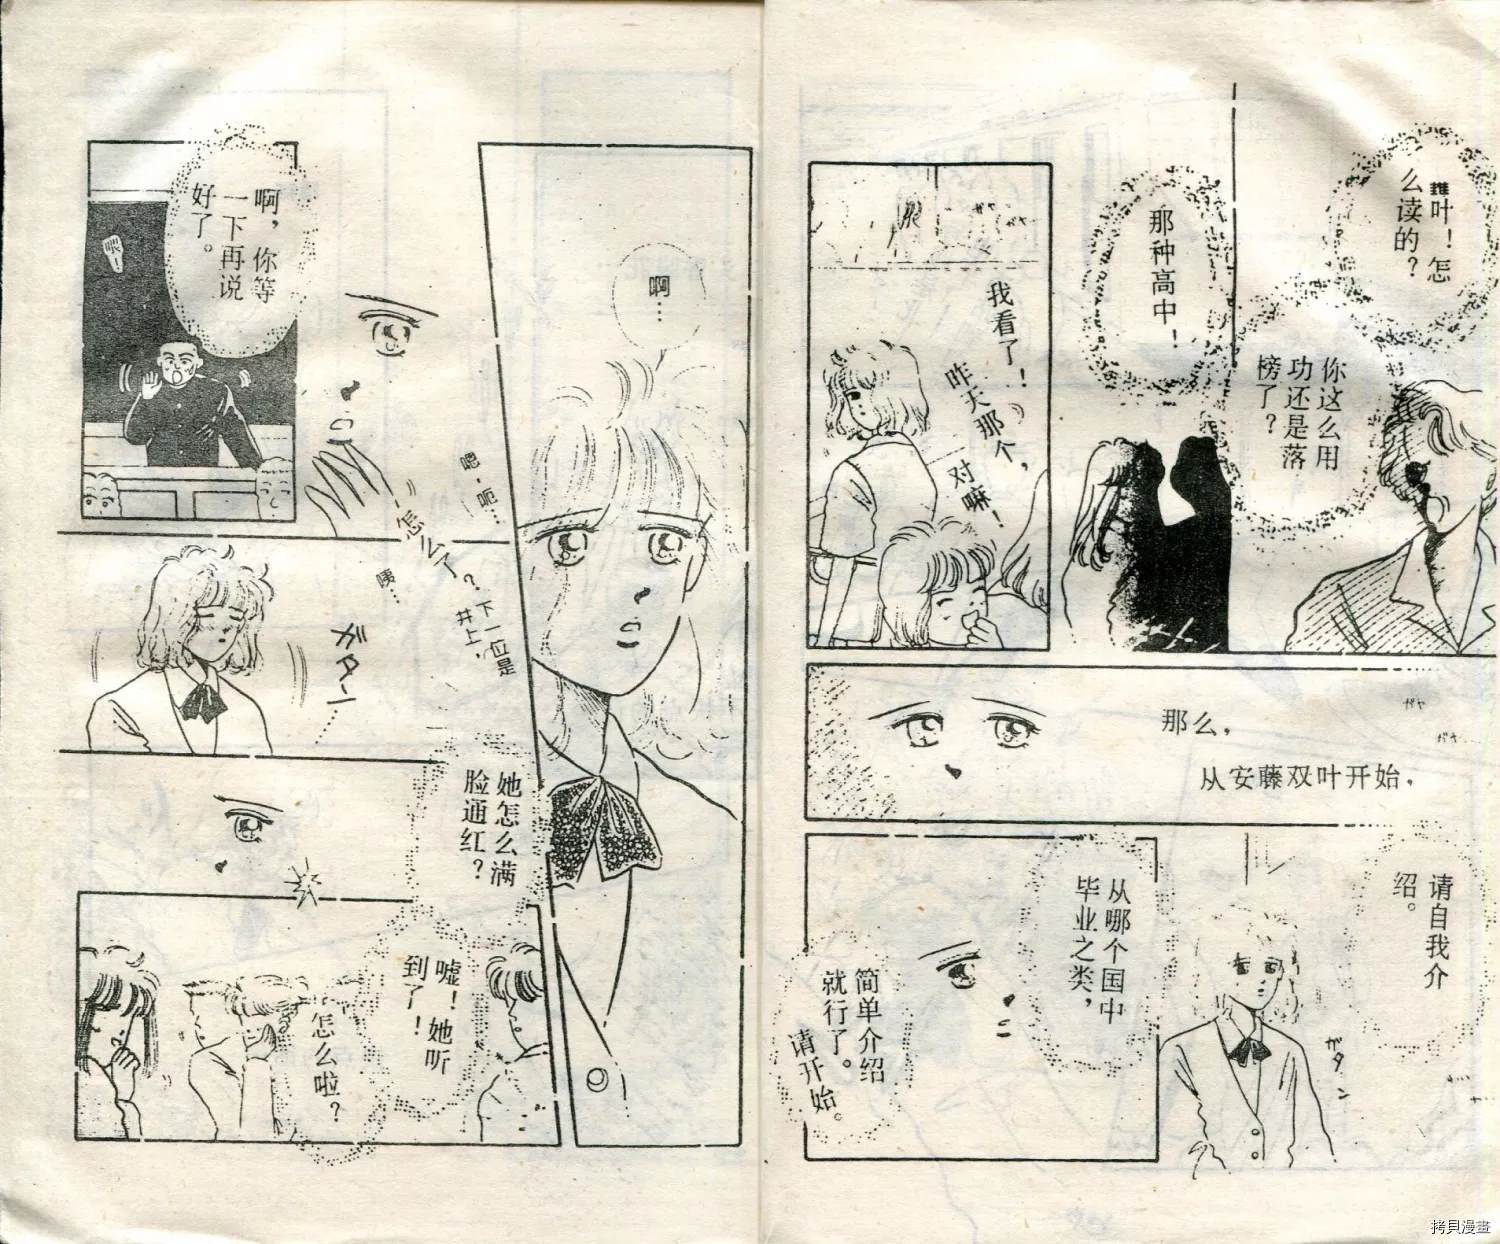 叶！怎
么读的？
那种高中！
你这么用
功还是落
榜了？
我看了！
昨天那个，
对嘛！
ガヤ
ガヤ
那么，
从安藤双叶开始，
请自我介
绍。
ガタン
从哪个国中
毕业之类，
简单介绍
就行了。
请开始。
啊…
啊，你等
一下再说
好了。
嗯·呃…
…怎么了？
咦…
下一位是
井上，
ガターン……
她怎么满
脸通红？
嘘！她听
到了！
怎么啦？
拷貝漫畫